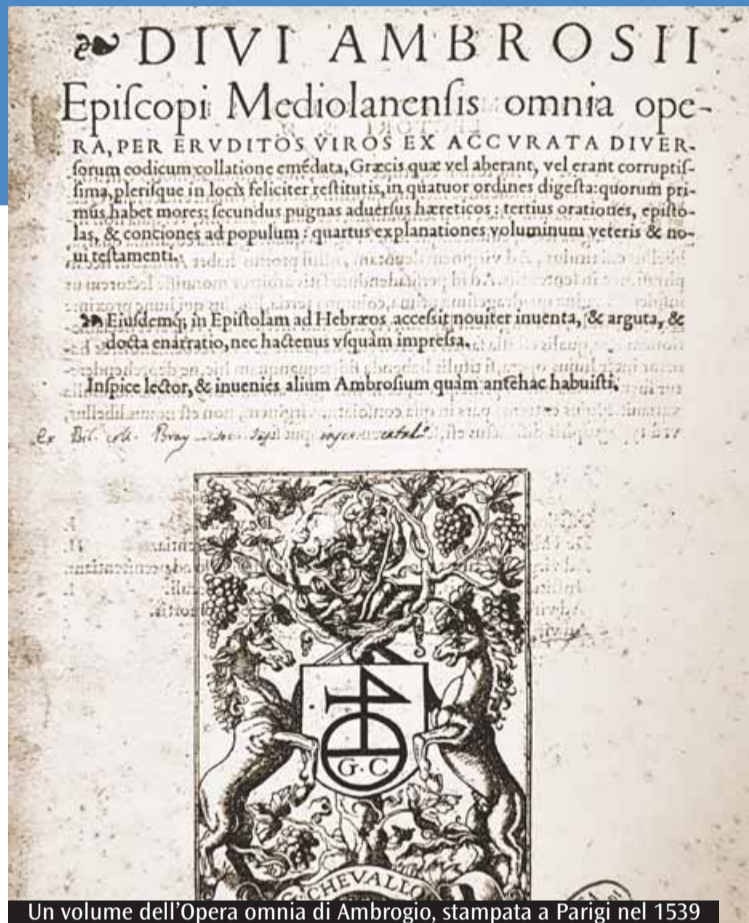 DIVI AMBROSII
Epiſcopi Mediolanenſis omnia ope-
RA, PER ERVDITOS VIROS EX ACCVRATA DIVER-
ſorum codicum collatione emẽdata, Græcis quæ vel aberant, vel erant corruptiſ-
ſima, pleriſque in locis feliciter reſtitutis, in quatuor ordines digeſta: quorum pri-
mus habet mores: ſecundus pugnas aduerſus hæreticos: tertius orationes, epiſto-
las, & conciones ad populum: quartus explanationes voluminum veteris & no-
ui teſtamenti.
Eiuſdemq; in Epiſtolam ad Hebræos acceſsit nouiter inuenta, & arguta, &
docta enarratio, nec hactenus vſquàm impreſſa.
Inſpice lector, & inuenies alium Ambroſium quàm antehac habuiſti.
Ex Bib. coll.
G. C
CHEVALLO
Un volume dell'Opera omnia di Ambrogio, stampata a Parigi nel 1539